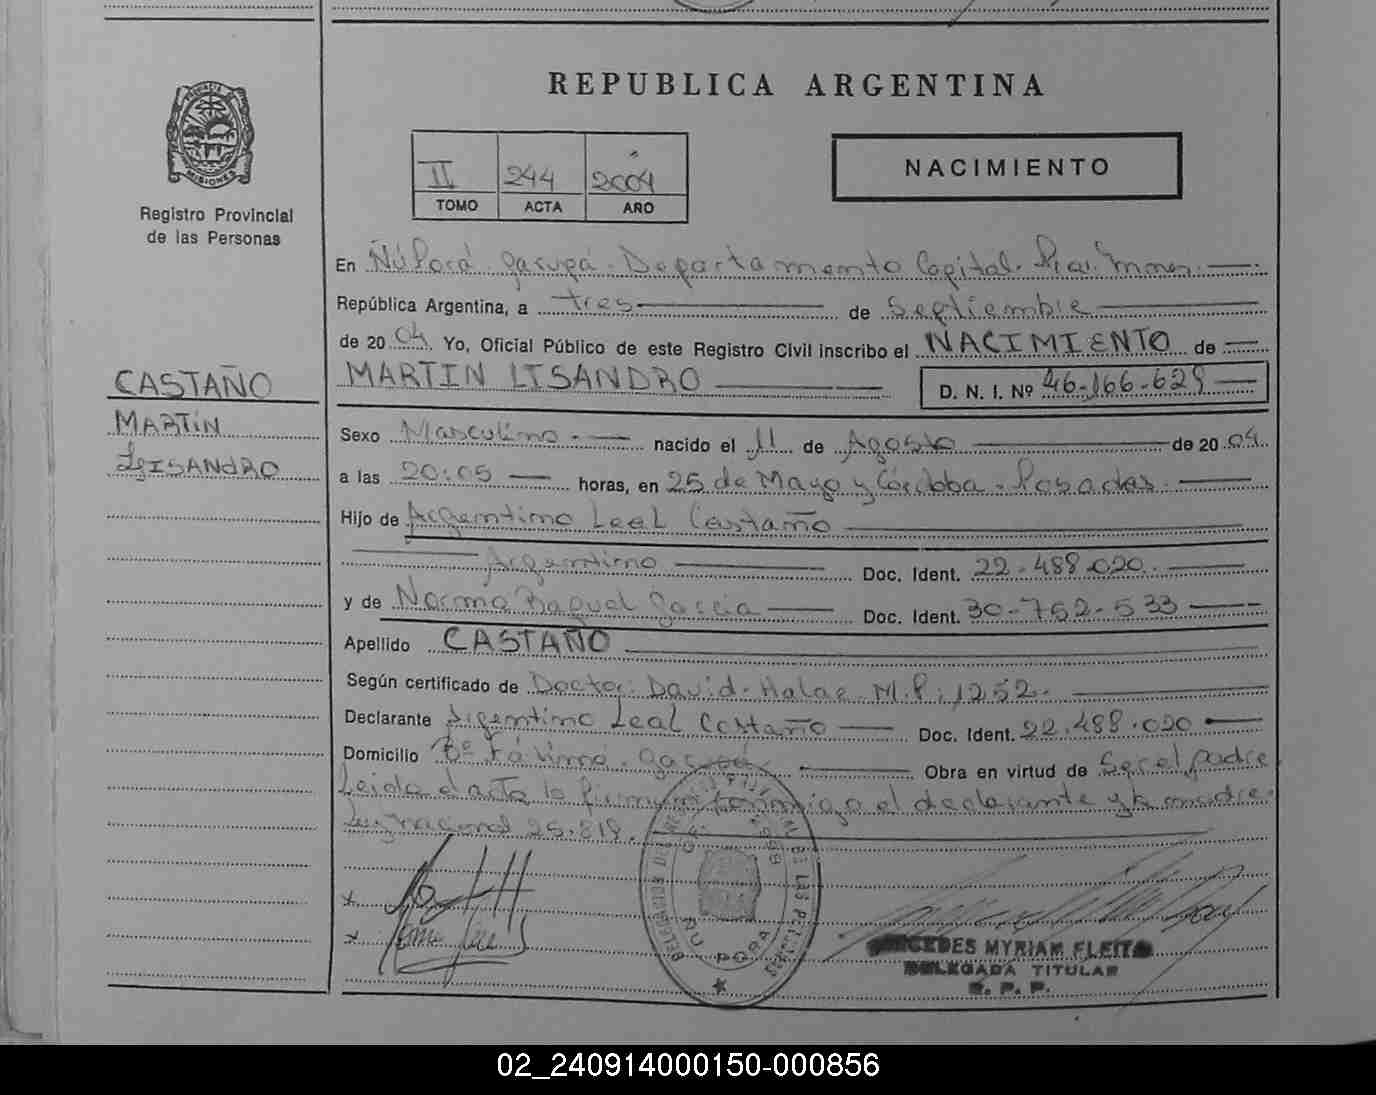 REPUBLICA ARGENTINA
PROVINCIA DE MISIONES
Registro Provincial
de las Personas
II 244 2004
TOMO ACTA AÑO
NACIMIENTO
En Ñú Porá Garupá Departamento Capital
República Argentina, a tres de Septiembre
de 2004. Yo, Oficial Público de este Registro Civil inscribo el NACIMIENTO de
MARTIN LISANDRO D. N. I. Nº 46-166-629
CASTAÑO
MARTIN
LISANDRO
Sexo Masculino nacido el 11 de Agosto de 2004
a las 20:05 horas, en 25 de Mayo y Córdoba - Posadas
Hijo de Argentino Leal Castaño
Argentino Doc. Ident. 22.488.020
y de Norma Raquel Garcia Doc. Ident. 30-762-533
Apellido CASTAÑO
Según certificado de Doctor: David Halac M.P: 1252.
Declarante Argentino Leal Castaño Doc. Ident. 22.488.020
Domicilio Bº Fátima. Garupá Obra en virtud de Ser el padre
Leida el acta la firman conmigo el declarante y la madre.
Ley nacional 25.819.
DELEGACION DEL REGISTRO PROVINCIAL DE LAS PERSONAS
ÑU PORA
MERCEDES MYRIAM FLEITA
DELEGADA TITULAR
R. P. P.
02_240914000150-000856